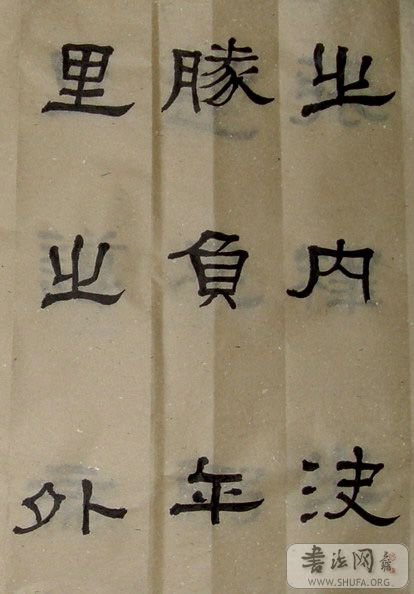 之内決
勝負年
里之外
書法网
WWW.SHUFA.ORG